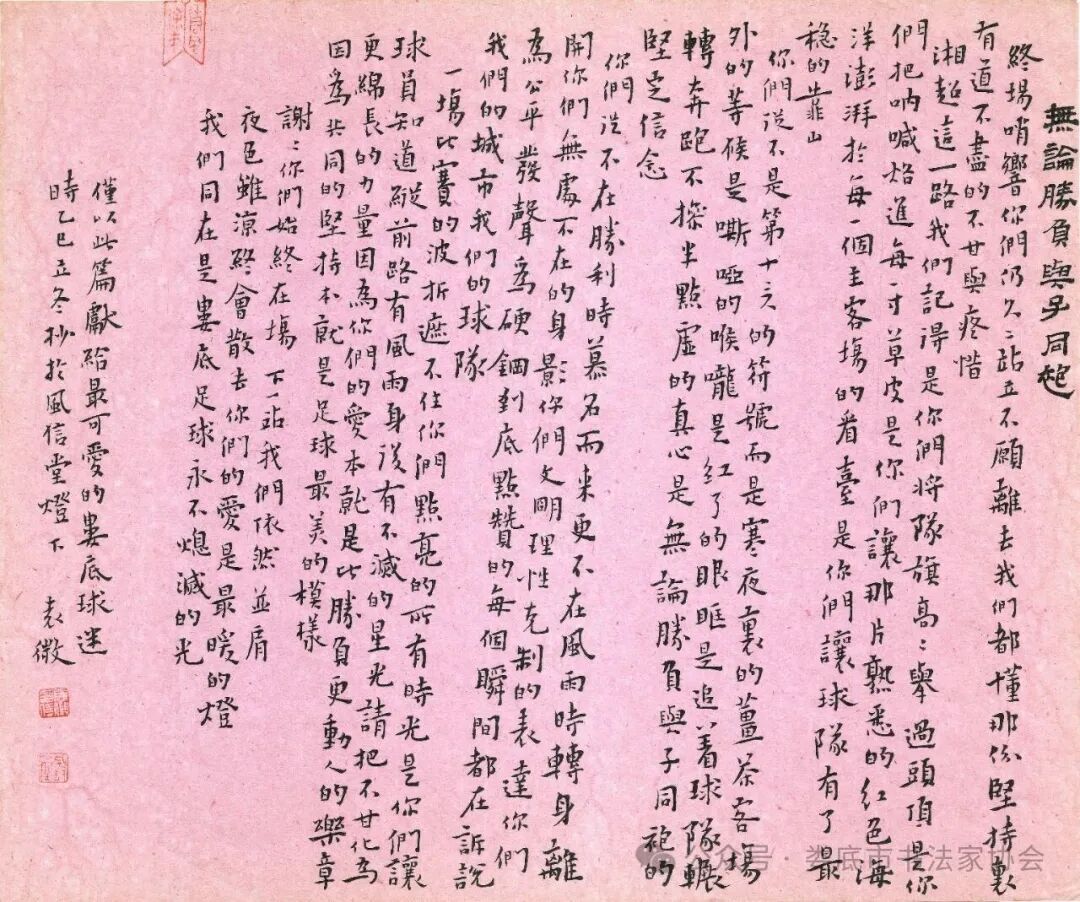 無論勝負與子同袍
終場哨響你們仍久久站立不願離去我們都懂那份堅持裏
有道不盡的不甘與疼惜
湘超這一路我們記得是你們將隊旗高高舉過頭頂是你
們把吶喊烙進每一寸草皮是你們讓那片熟悉的紅色海
洋澎湃於每一個主客場的看臺是你們讓球隊有了最
穩的靠山
你們從不是第十二人的符號而是寒夜裏的薑茶客場
外的等候是嘶啞的喉嚨是紅了的眼眶是追著球隊輾
轉奔跑不摻半點虛的真心是無論勝負與子同袍的
堅定信念
你們從不在勝利時慕名而來更不在風雨時轉身離
開你們無處不在的身影你們文明理性克制的表達你們
為公平發聲為硬鋼到底點贊的每個瞬間都在訴說
我們的城市我們的球隊
一場比賽的波折遮不住你們點亮的所有時光是你們讓
球員知道縱前路有風雨身後有不滅的星光請把不甘化為
更綿長的力量因為你們的愛本就是比勝負更動人的樂章
因為共同的堅持本就是足球最美的模樣
謝謝你們始終在場下一站我們依然並肩
夜色雖涼終會散去你們的愛是最暖的燈
我們同在是婁底足球永不熄滅的光
僅以此篇獻給最可愛的婁底球迷
時乙巳立冬抄於風信堂燈下 袁微
公众号·娄底市书法家协会